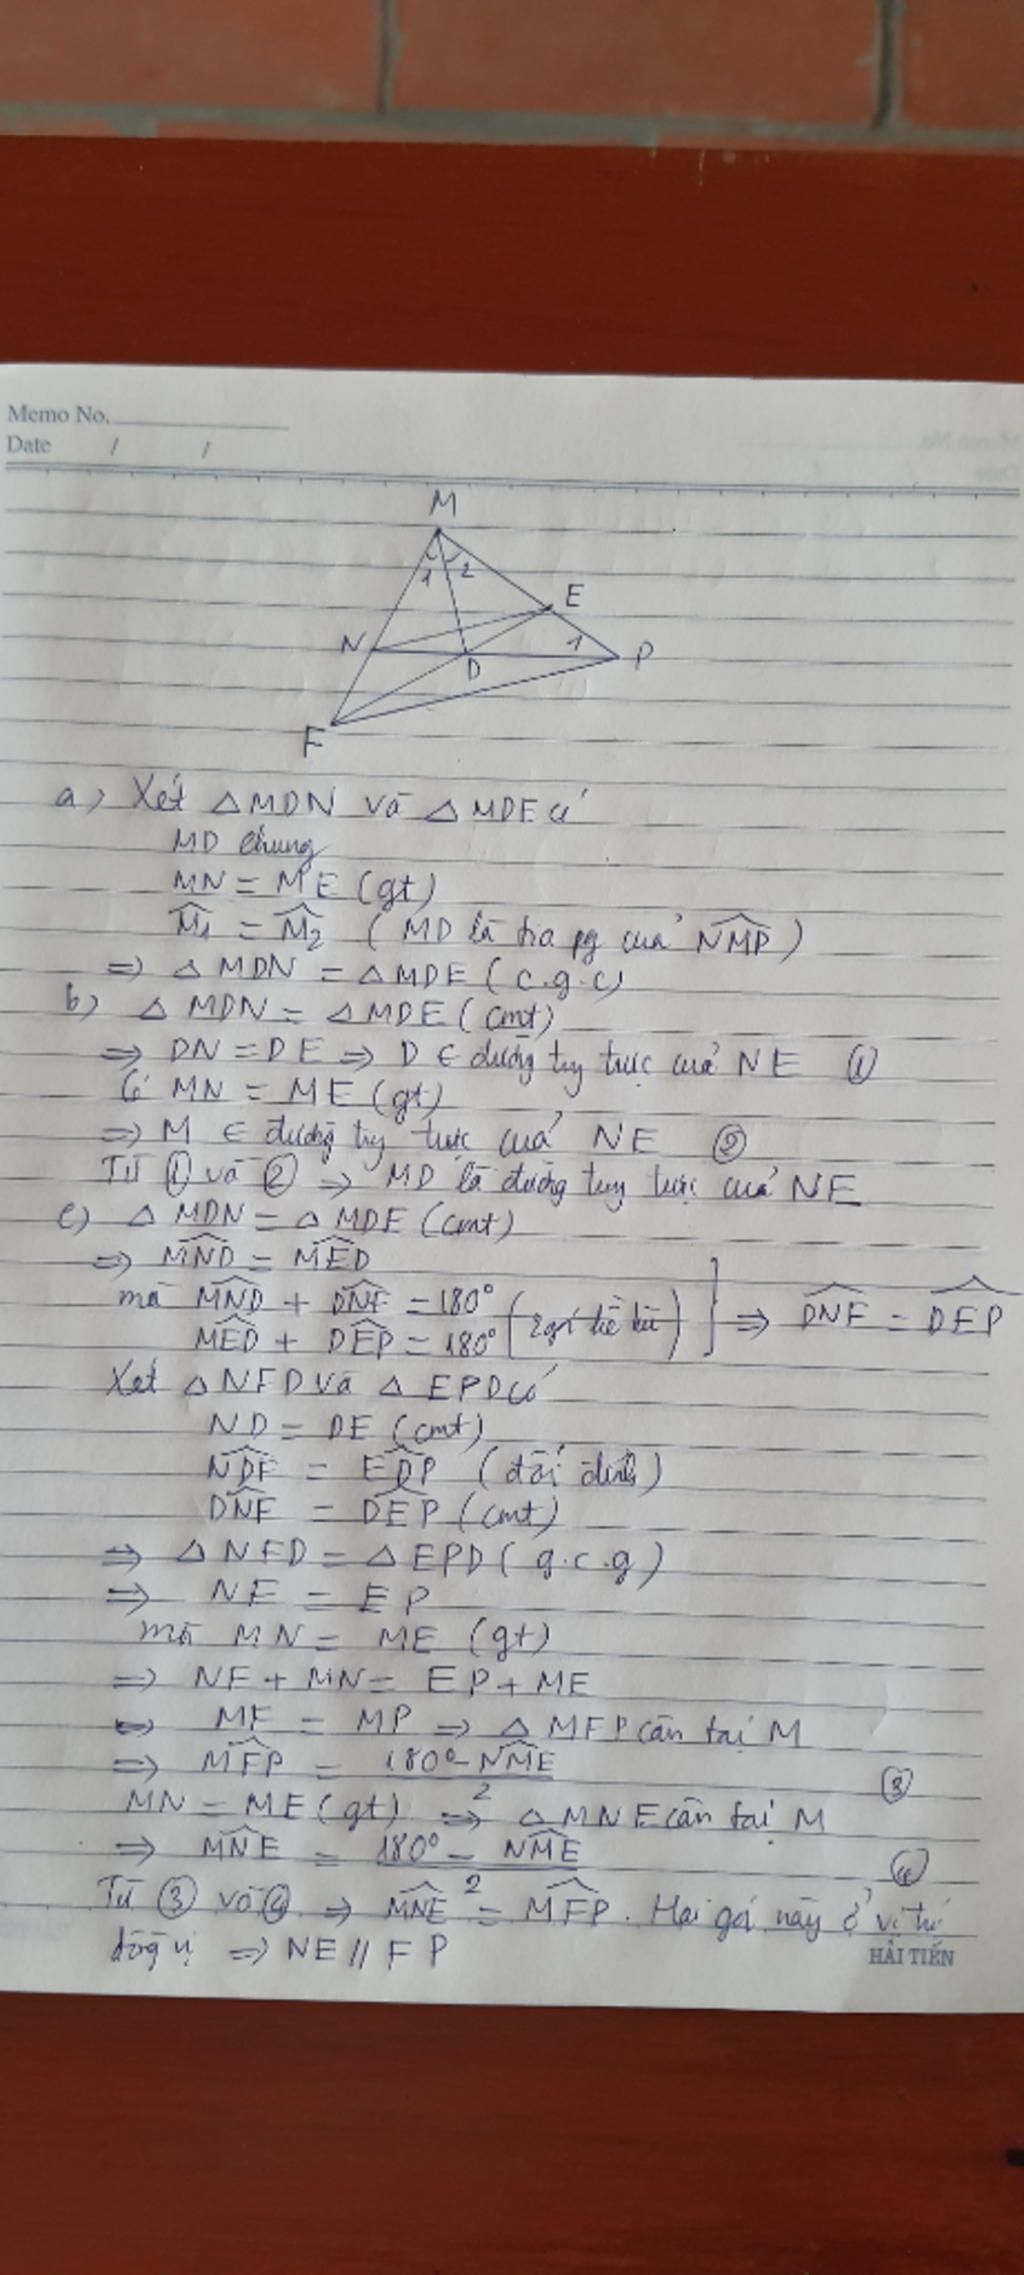 Memo No.
Date / /
M
1 2
E
N 1 P
D
F
a) Xét △MDN và △MDE có
MD chung
MN = ME (gt)
M̂₁ = M̂₂ (MD là tia pg của NMP̂)
=> △MDN = △MDE (c.g.c)
b) △MDN = △MDE (cmt)
=> DN = DE => D ∈ đường trg trực của NE ①
Có MN = ME (gt)
=> M ∈ đường trg trực của NE ②
Từ ① và ② => MD là đường trg trực của NE
c) △MDN = △MDE (cmt)
=> MND̂ = MED̂
mà MND̂ + DNF̂ = 180° (2 góc kề bù) } => DNF̂ = DEP̂
MED̂ + DEP̂ = 180°
Xét △NFD và △EPD có
ND = DE (cmt)
NDF̂ = EDP̂ (đối đỉnh)
DNF̂ = DEP̂ (cmt)
=> △NFD = △EPD (g.c.g)
=> NF = EP
mà MN = ME (gt)
=> NF + MN = EP + ME
<=> MF = MP => △MFP cân tại M
=> MFP̂ = (180° - NMÊ)/2 ③
MN = ME (gt) => △MNE cân tại M
=> MNÊ = (180° - NMÊ)/2 ④
Từ ③ và ④ => MNÊ = MFP̂. Hai góc này ở vị trí
đồng vị => NE // FP
HẢI TIẾN